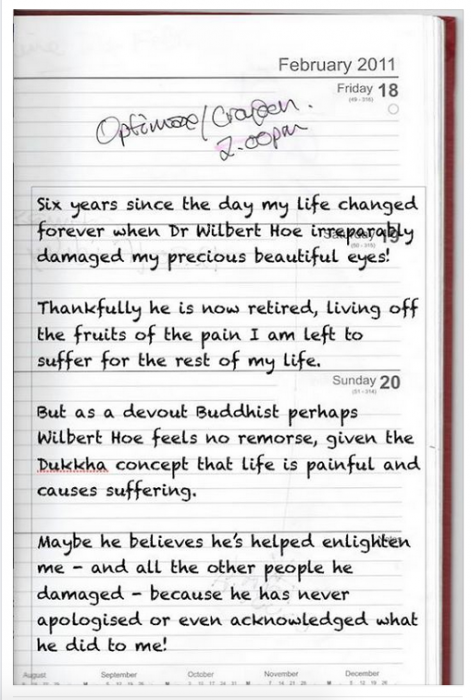 February 2011
Friday 18
(49 - 316)
Optimax/Croydon.
2.00pm
Six years since the day my life changed
forever when Dr Wilbert Hoe irreparably
Saturday 19
(50 - 315)
damaged my precious beautiful eyes!
Thankfully he is now retired, living off
the fruits of the pain I am left to
suffer for the rest of my life.
Sunday 20
(51 - 314)
But as a devout Buddhist perhaps
Wilbert Hoe feels no remorse, given the
Dukkha concept that life is painful and
causes suffering.
Maybe he believes he's helped enlighten
me - and all the other people he
damaged - because he has never
apologised or even acknowledged what
he did to me!
August September October November December